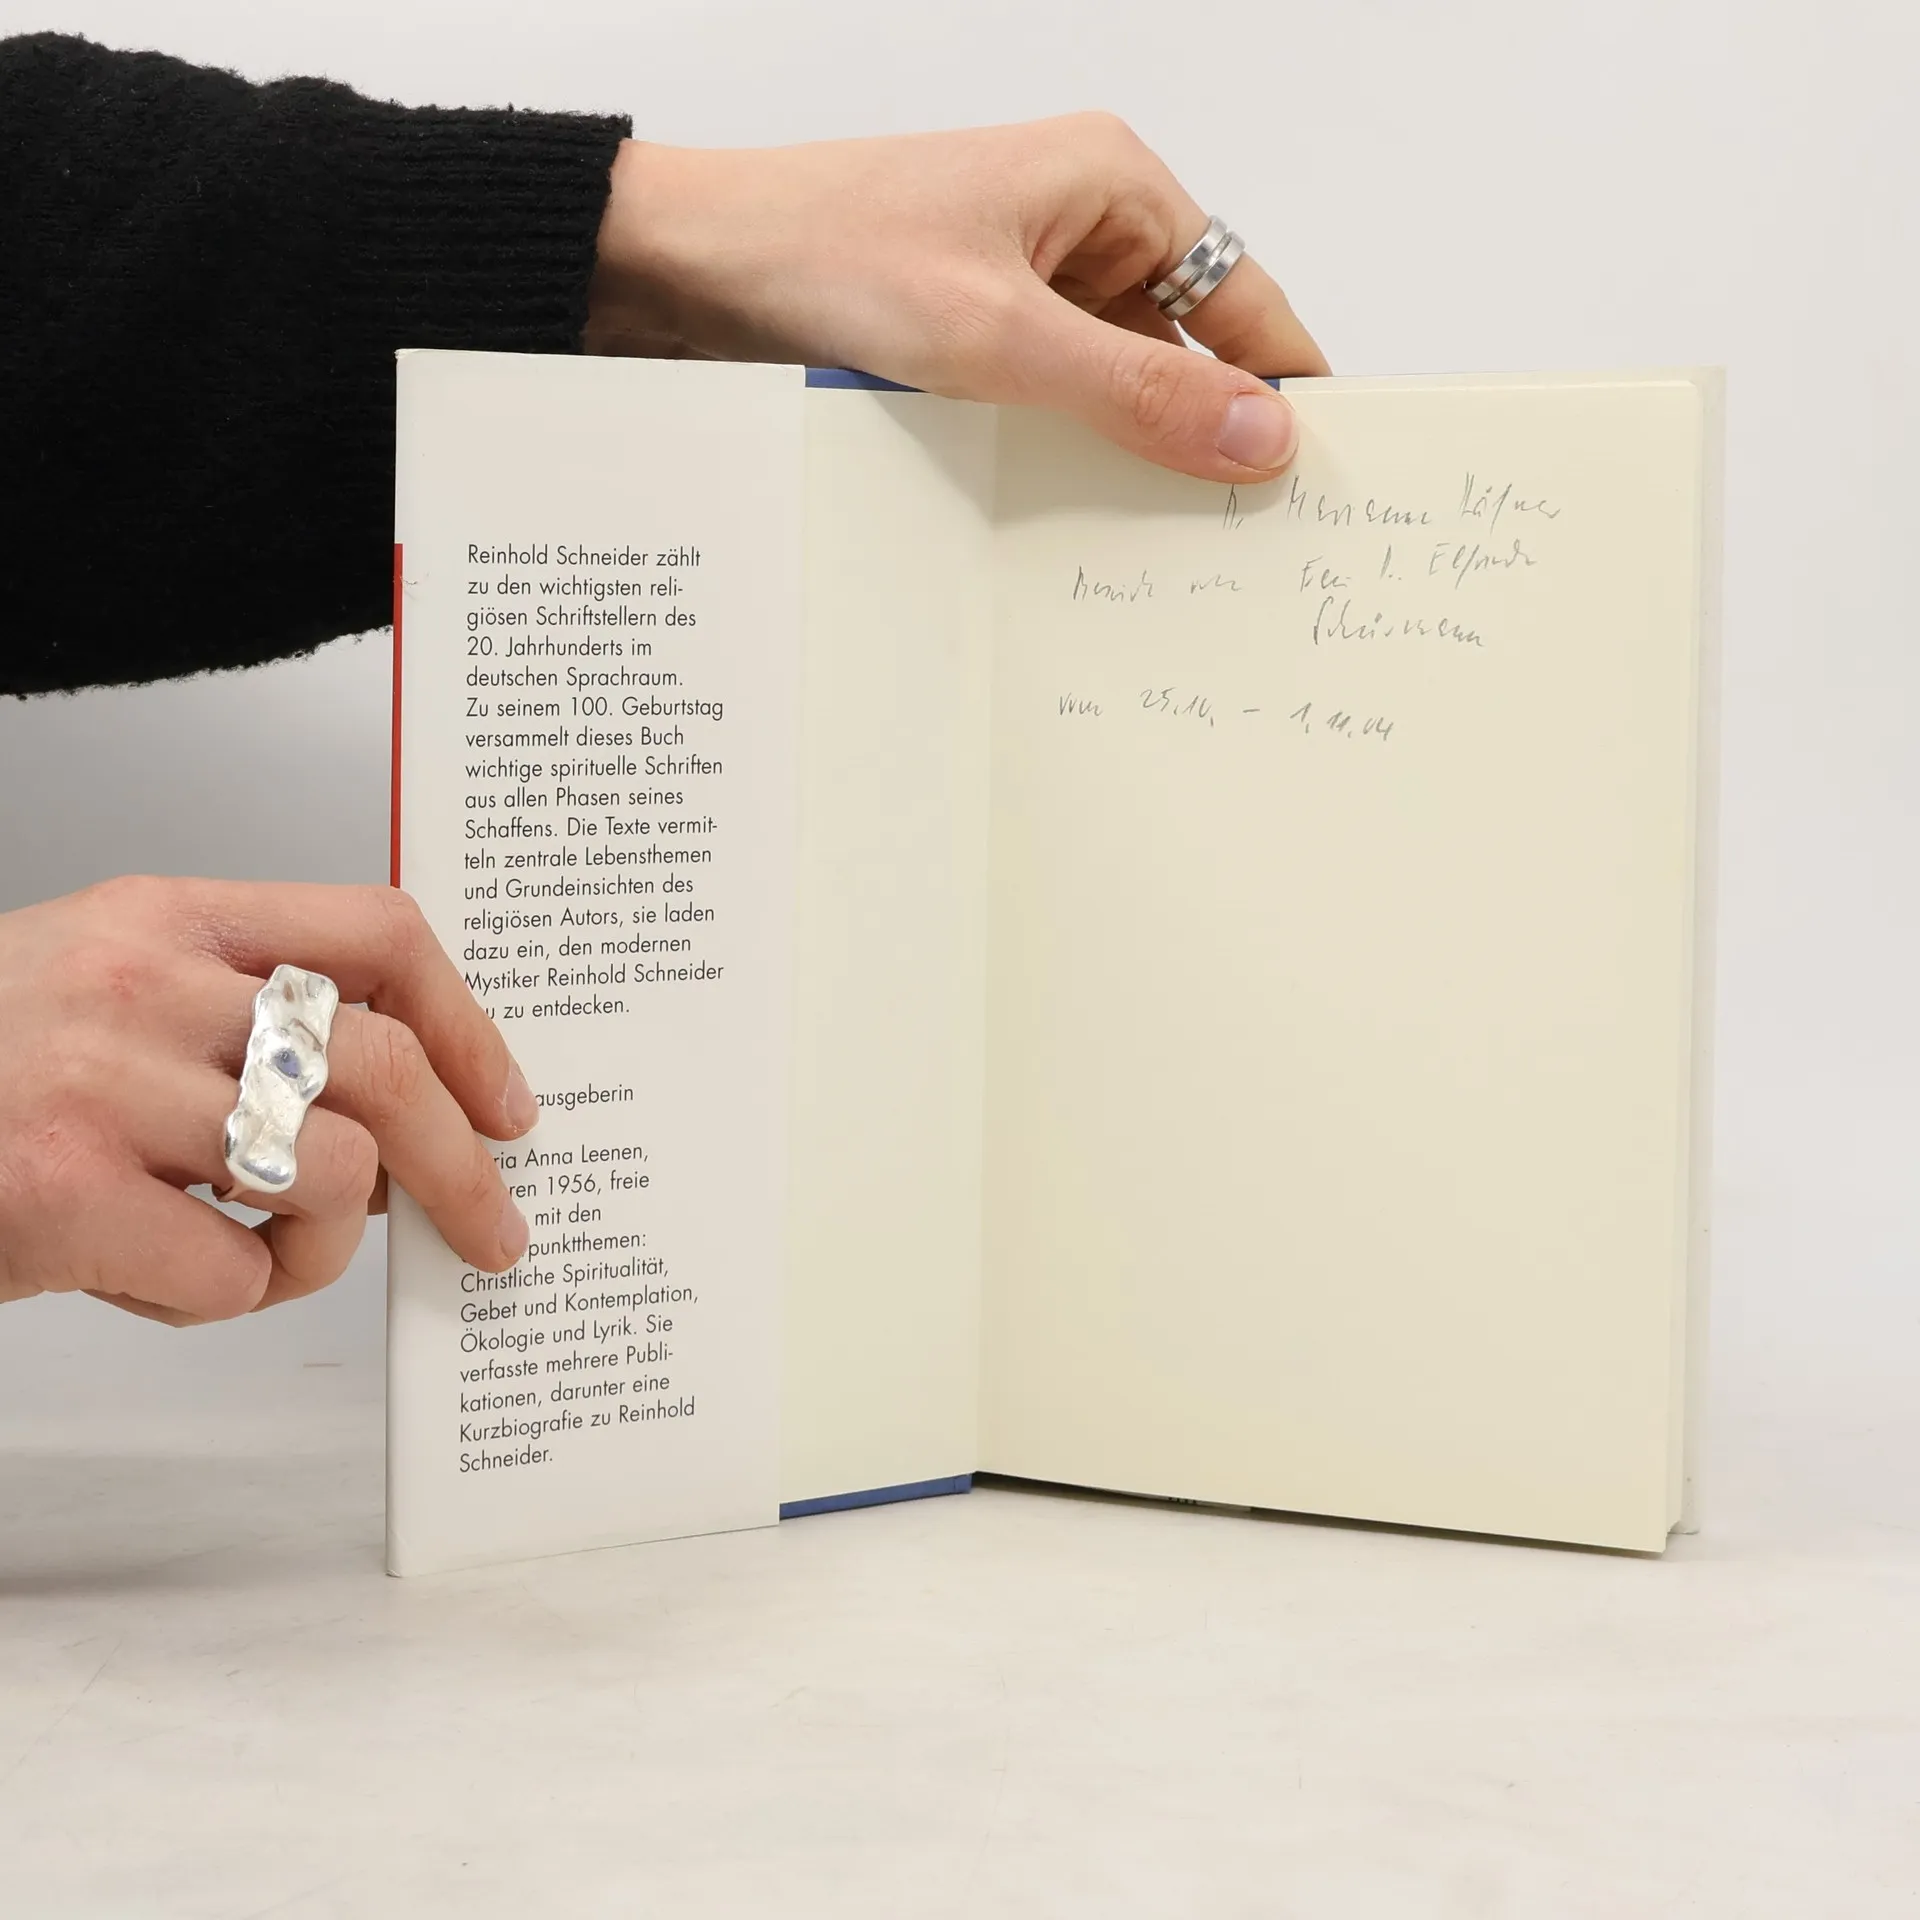 Reinhold Schneider zählt
zu den wichtigsten reli-
giösen Schriftstellern des
20. Jahrhunderts im
deutschen Sprachraum.
Zu seinem 100. Geburtstag
versammelt dieses Buch
wichtige spirituelle Schriften
aus allen Phasen seines
Schaffens. Die Texte vermit-
teln zentrale Lebensthemen
und Grundeinsichten des
religiösen Autors, sie laden
dazu ein, den modernen
Mystiker Reinhold Schneider
u zu entdecken.
ausgeberin
ria Anna Leenen,
ren 1956, freie
mit den
punktthemen:
Christliche Spiritualität,
Gebet und Kontemplation,
Ökologie und Lyrik. Sie
verfasste mehrere Publi-
kationen, darunter eine
Kurzbiografie zu Reinhold
Schneider.
Marianne Häfner
Besuch von Frau Dr. Elfriede
Schürmann
vom 25.10. – 1.11.04